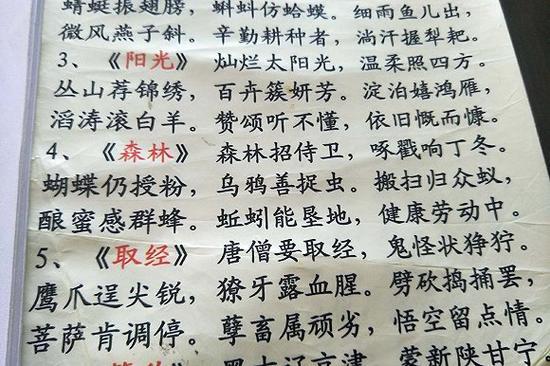 蜻蜓振翅膀，蝌蚪仿蛤蟆。细雨鱼儿出，
微风燕子斜。辛勤耕种者，淌汗握犁耙。
3、《阳光》灿烂太阳光，温柔照四方。
丛山荐锦绣，百卉簇妍芳。淀泊嬉鸿雁，
滔涛滚白羊。赞颂听不懂，依旧慨而慷。
4、《森林》森林招侍卫，啄戳响丁冬。
蝴蝶仍授粉，乌鸦善捉虫。搬扫归众蚁，
酿蜜感群蜂。蚯蚓能垦地，健康劳动中。
5、《取经》唐僧要取经，鬼怪状狰狞。
鹰爪逞尖锐，獠牙露血腥。劈砍捣捅罢，
菩萨肯调停。孽畜属顽劣，悟空留点情。
蒙新陕甘宁。